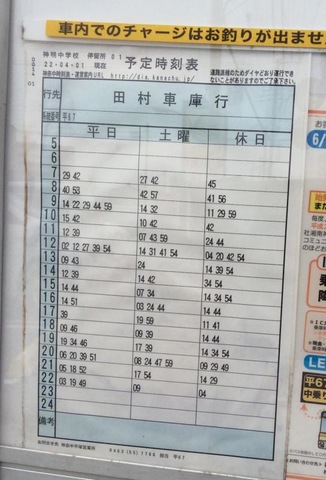 車内でのチャージはお釣りが出ませ
神明中学校 停留所 01
22-04-01 現在
予定時刻表
神奈中時刻表・運賃案内URL http://dia.kanachu.jp/
道路混雑のためダイヤどおり運行でき
ないことがありますのでご了承下さい
行先 田村車庫行
系統番号 平67
平日 土曜 休日
5
6
7 29 42 27 42 45
8 40 53 42 57 41 56
9 14 22 29 44 59 14 32 11 29 59
10 15 42 10 42 42
11 12 39 07 43 59 24 44
12 02 12 27 39 54 14 31 41 54 04 20 42 54
13 09 53 24 24 54
14 12 39 14 42 14 39 54
15 14 44 07 34 04 34 54
16 14 51 03 24 44 14 34 54
17 39 19 59 11 41
18 09 46 09 39
19 19 34 46 17 39 12 34 54
20 06 20 39 51 08 24 47 59 09 29 52
21 05 18 52 17 54 14 29
22 03 19 49 09 04
23
24
備考